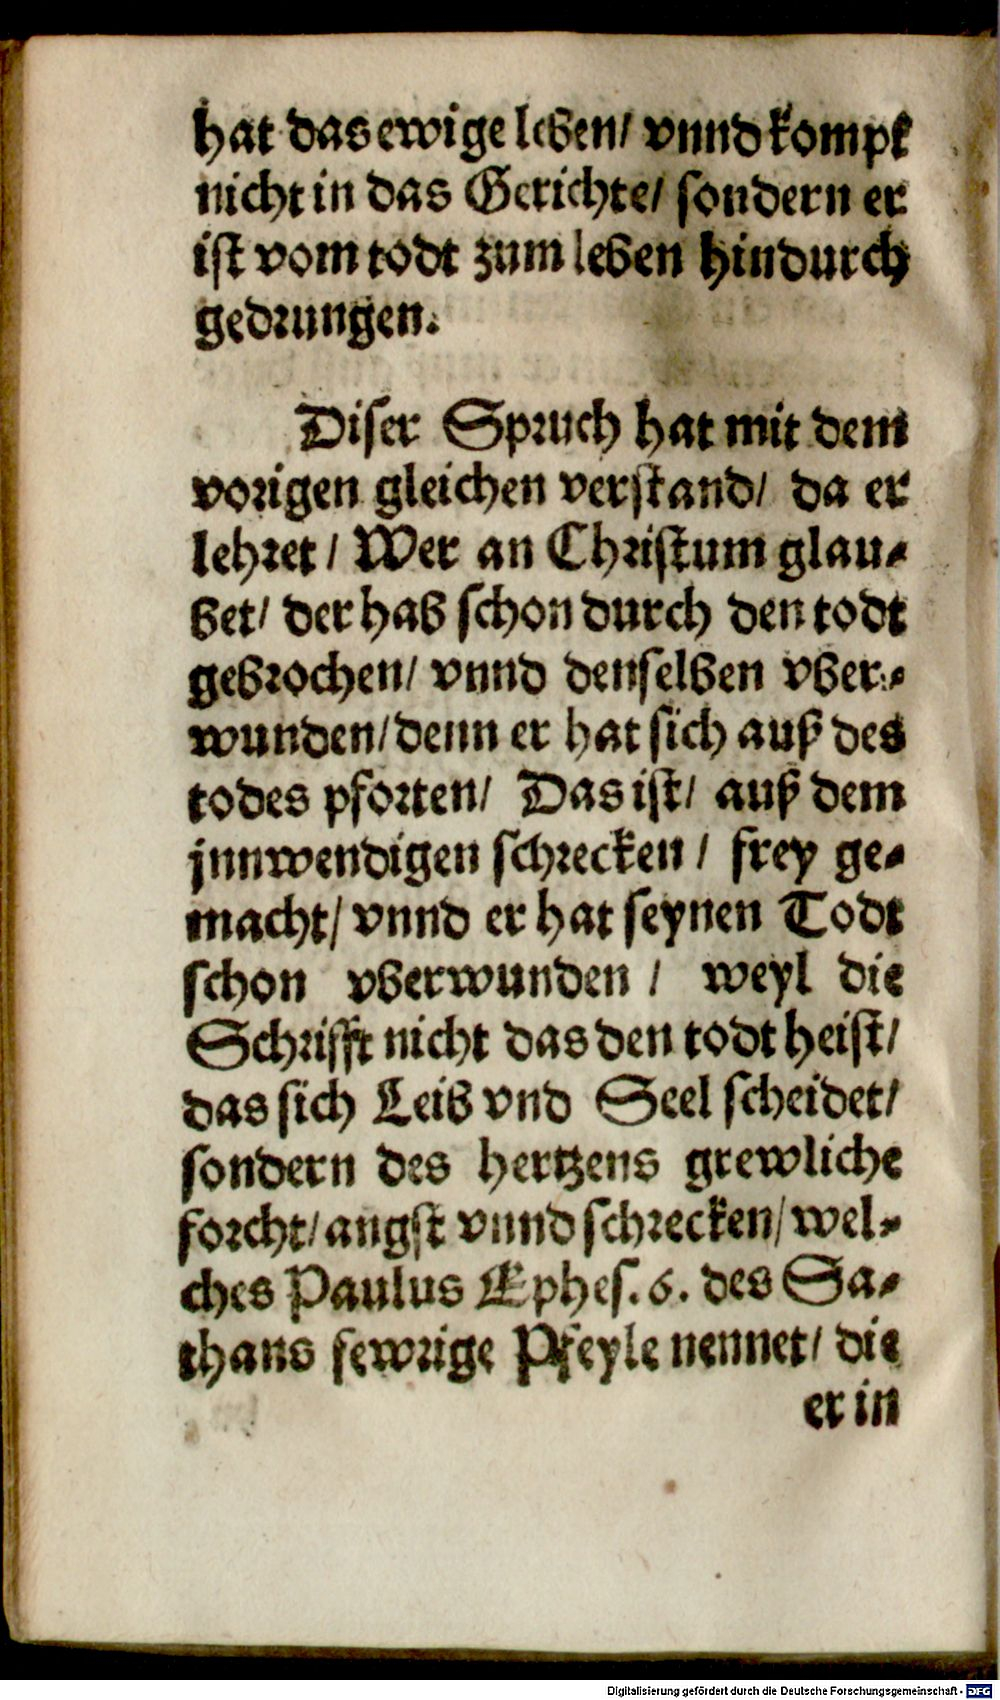 hat das ewige leben/ vnnd kompt
nicht in das Gerichte/ sondern er
ist vom todt zum leben hindurch
gedrungen.
Diser Spruch hat mit dem
vorigen gleichen verstand/ da er
lehret/ Wer an Christum glau-
bet/ der hab schon durch den todt
gebrochen/ vnnd denselben vber-
wunden/ denn er hat sich auß des
todes pforten/ Das ist/ auß dem
jnnwendigen schrecken/ frey ge-
macht/ vnnd er hat seynen Todt
schon vberwunden/ weyl die
Schrifft nicht das den todt heist/
das sich Leib vnd Seel scheidet/
sondern des hertzens grewliche
forcht/ angst vnnd schrecken/ wel-
ches Paulus Ephes. 6. des Sa-
thans fewrige Pfeyle nennet/ die
er in
Digitalisierung gefördert durch die Deutsche Forschungsgemeinschaft - DFG